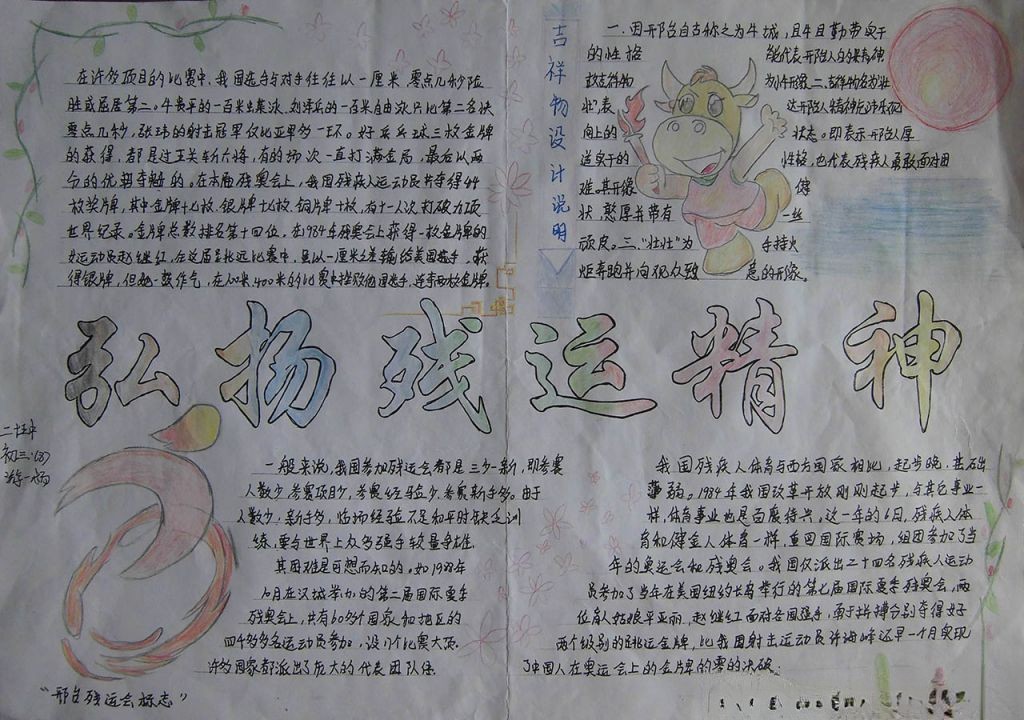 在许多项目的比赛中，我国选手与对手往往以一厘米、零点几秒险
胜或屈居第二。牛爱平的一百米蝶泳、刘泽兵的一百米自由泳只比第二名快
零点几秒，张玮的射击冠军仅比亚军多一环。好乒乓球三枚金牌
的获得，都是过五关斩六将，有的场次一直打满全局，最后以两
分的优势夺魁的。在本届残奥会上，我国残疾人运动员共夺得44
枚奖牌，其中金牌十七枚、银牌十七枚、铜牌十枚，有十一人次打破九项
世界纪录。金牌总数排名第十四位。在1984年残奥会上获得一枚金牌的
女运动员赵继红，在这届
获
得银牌，但她一鼓作气，在200米、400米的比赛
连夺两枚金牌。
吉祥物设计说明
一、因邢台自古称之为牛城，且牛且勤劳实干
的性格 能代表邢台人的精神
故吉祥物 为牛形象。二、吉祥物名为壮
壮，表 达邢台人精神充沛乐观
向上的 状态。即表示邢台人厚
道实干的 性格，也代表残疾人勇敢面对困
难。其形象 健
状，憨厚并带有 一丝
顽皮。三、“壮壮”为 手持火
炬奔跑并向观众致 意的形象。
弘扬残运精神
二十五中
初三·(3)
游一杨
“邢台残运会标志”
一般来说，我国参加残运会都是三少一新，即参赛
人数少、参赛项目少、参赛经验少、参赛新手多。由于
人数少、新手多，临场经验不足和平时缺乏训
练，要与世界上众多强手较量争雄，
其困难是可想而知的。如1988年
10月在汉城举办的第二届国际夏季
残奥会上，共有60多个国家和地区的
四千多名运动员参加，设17个比赛大项。
许多国家都派出了庞大的代表团队伍。
我国残疾人体育与西方国家相比，起步晚，基础
薄弱。1984年我国改革开放刚刚起步，与其它事业一
样，体育事业也是百废待兴，这一年的6月，残疾人体
育和健全人体育一样，重回国际赛场，组团参加了当
年的奥运会和残奥会。我国仅派出二十四名残疾人运动
员参加了当年在美国纽约长岛举行的第七届国际夏季残奥会，两
位盲人姑娘平亚丽、赵继红面对各国强手，勇于拼搏分别夺得好
两个级别的跳远金牌，比我国射击运动员许海峰还早一个月实现
了中国人在奥运会上的金牌的零的决破。